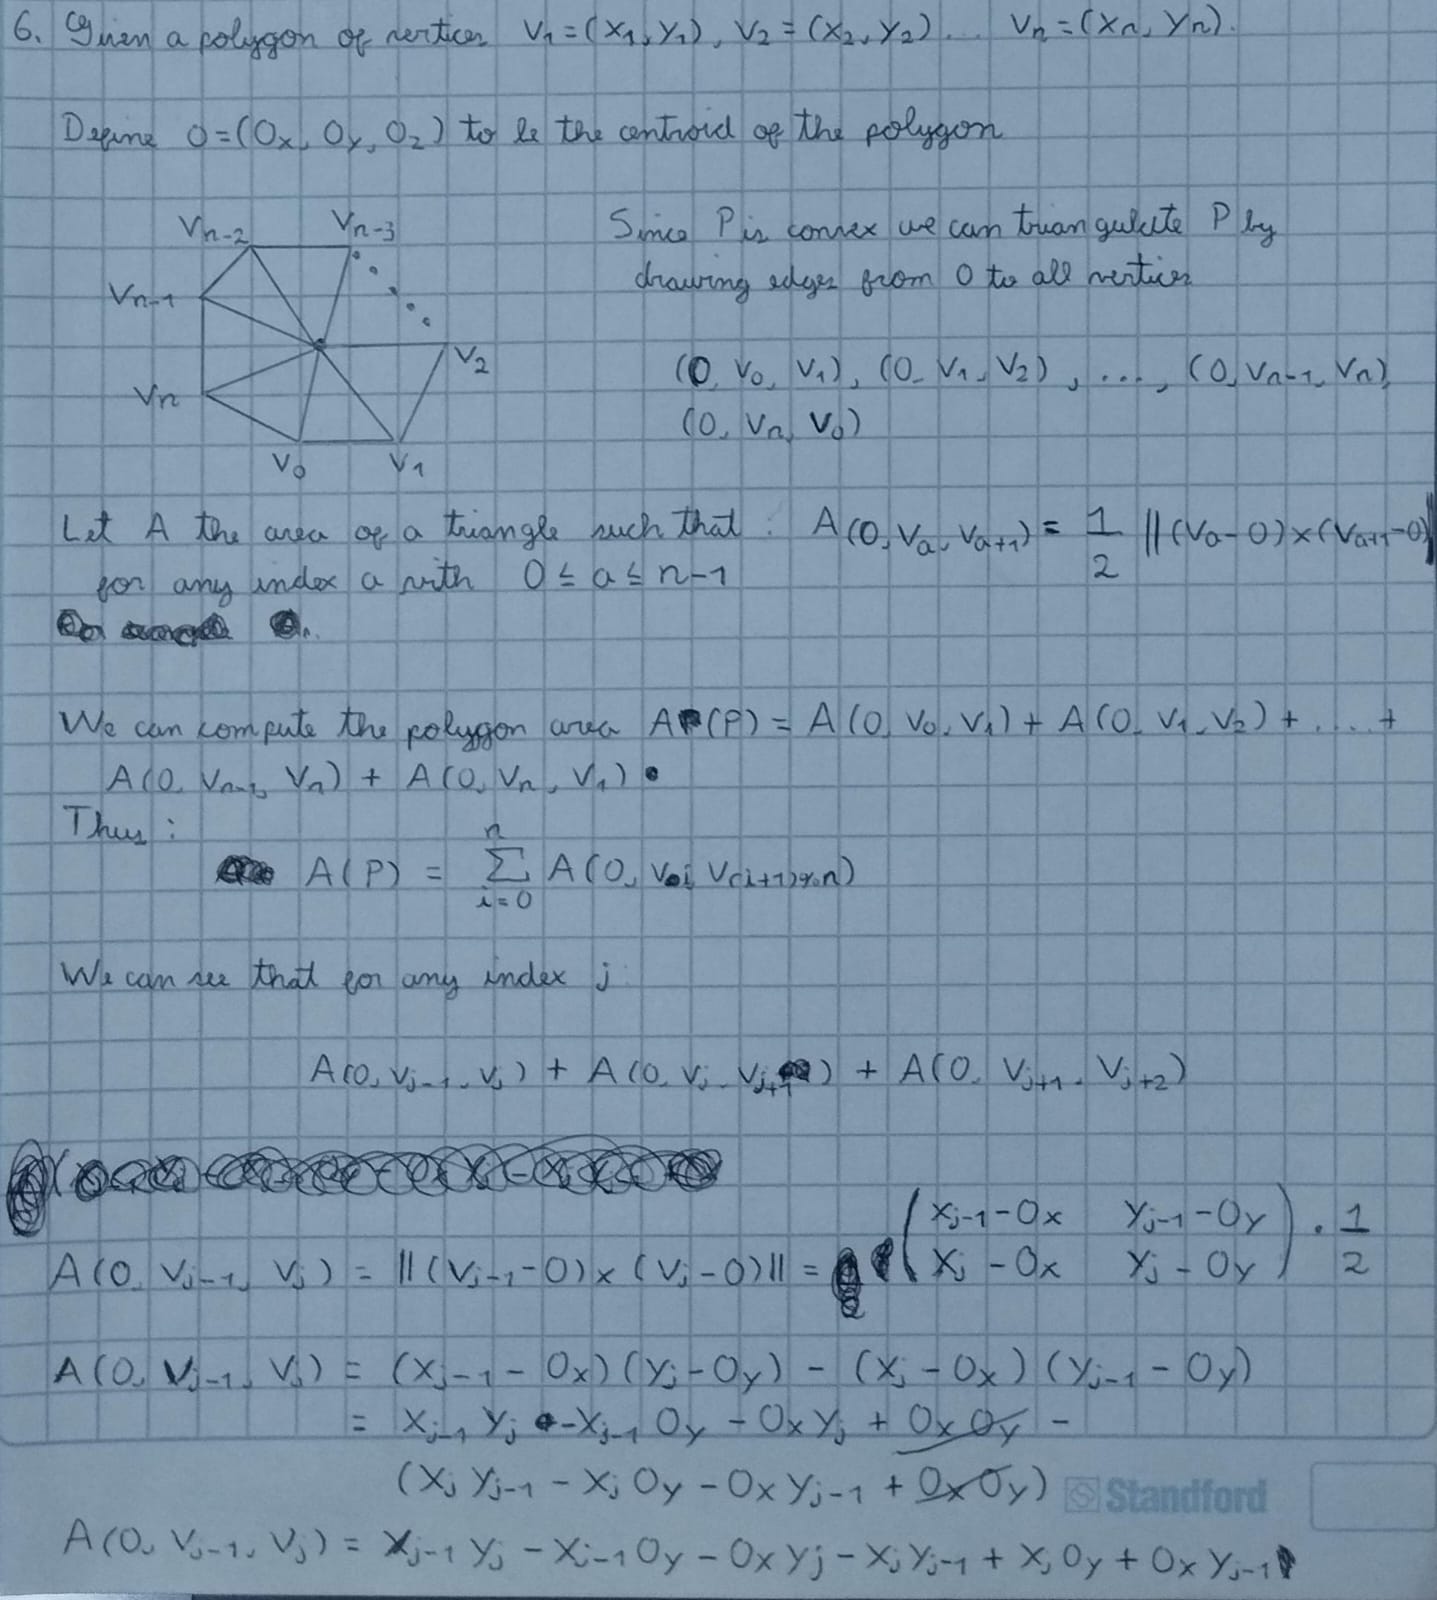 6. Given a polygon of vertices V1=(x1,y1), V2=(x2,y2)... Vn=(xn,yn).
Define O=(Ox, Oy, Oz) to be the centroid of the polygon
Vn-2 Vn-3
Vn-1
Vn
V0 V1
V2
Since P is convex we can triangulate P by
drawing edges from O to all vertices
(O, V0, V1), (O, V1, V2), ..., (O, Vn-1, Vn),
(O, Vn, V0)
Let A the area of a triangle such that : A(O, Va, Va+1) = 1/2 ||(Va-O)×(Va+1-O)||
for any index a with 0 ≤ a ≤ n-1
We can compute the polygon area A(P) = A(O, V0, V1) + A(O, V1, V2) + .... +
A(O, Vn-1, Vn) + A(O, Vn, V1).
Thus :
A(P) = Σ i=0 n A(O, Vi, V(i+1)%n)
We can see that for any index j
A(O, Vj-1, Vj) + A(O, Vj, Vj+1) + A(O, Vj+1, Vj+2)
A(O, Vj-1, Vj) = ||(Vj-1-O)×(Vj-O)|| = (xj-1-Ox yj-1-Oy xj-Ox yj-Oy) . 1/2
A(O, Vj-1, Vj) = (xj-1 - Ox)(yj-Oy) - (xj-Ox)(yj-1-Oy)
= xj-1 yj -xj-1 Oy - Ox yj + Ox Oy -
(xj yj-1 - xj Oy - Ox yj-1 + Ox Oy)
Standford
A(O, Vj-1, Vj) = xj-1 yj - xj-1 Oy - Ox yj - xj yj-1 + xj Oy + Ox yj-1